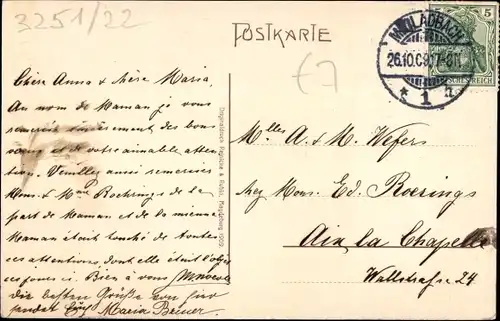 3251/22
POSTKARTE
M.GLADBACH
26.10.09.
* 1
5
£7
Chère Anna & chère Maria,
Au nom de Maman je vous
remercie sincèrement des bons
voeux et de votre aimable atten-
tion. Veuillez aussi remercier
Mons. & Mme Roehrings de la
part de Maman et de la mienne
Maman était touché de toutes
ces attentions, dont elle était l'objet
ces jours ci. Bien à vous
die besten Grüße von hier
sendet Euch Maria Beiner.
Mlles A. & M. Wefers
chez Mons. Ed. Roerings
Aix la Chapelle
Wallstraße 24